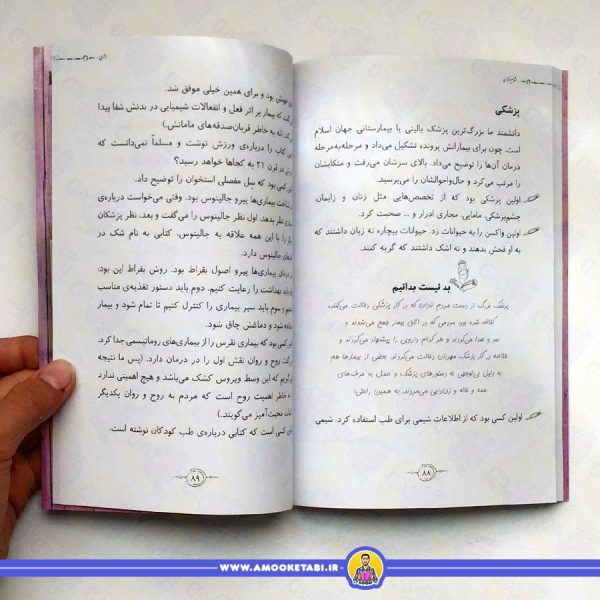 پزشکی
دانشمند ما بزرگ‌ترین پزشک بالینی یا بیمارستانی جهان اسلام
است. چون برای بیمارانش پرونده تشکیل می‌داد و مرحله‌به‌مرحله
درمان آن‌ها را توضیح می‌داد. بالای سرشان می‌رفت و متکایشان
را مرتب می‌کرد و حال‌واحوالشان را می‌پرسید.
اولین پزشکی بود که از تخصص‌هایی مثل زنان و زایمان،
چشم‌پزشکی، مامایی، مجاری ادرار و ... صحبت کرد.
اولین واکسن را به حیوانات زد. حیوانات بیچاره نه زبان داشتند که
به او فحش بدهند و نه اشک داشتند که گریه کنند.
بد نیست بدانیم
پزشک بزرگ از دست مردم نادان که در کار پزشکی دخالت می‌کنند،
کلافه شده بود. مردمی که در اتاق بیمار جمع می‌شدند و
سر و صدا می‌کردند و هر کدام دارویی را پیشنهاد می‌کردند و
خلاصه در کار پزشک مهربان دخالت می‌کردند. بعضی از بیمارها هم
به دلیل بی‌توجهی به دستورهای پزشک و عمل به حرف‌های
عمه و خاله و زن‌دایی می‌مردند. به همین راحتی!
اولین کسی بود که از اطلاعات شیمی برای طب استفاده کرد. شیمی
۸۸
خونش بود و برای همین خیلی موفق شد.
گفت که بیمار بر اثر فعل و انفعالات شیمیایی در بدنش شفا پیدا
(نه به خاطر قربان‌صدقه‌های مامانش.)
کتاب را درباره‌ی ورزش نوشت و مسلماً نمی‌دانست که
در قرن ۲۱ به کجاها خواهد رسید؟
کسی بود که سل مفصلی استخوان را توضیح داد.
بیماری‌ها پیرو جالینوس بود. وقتی می‌خواست درباره‌ی
نظر بدهد، اول نظر جالینوس را می‌گفت و بعد، نظر پزشکان
را با این همه علاقه به جالینوس، کتابی به نام شک در
جالینوس دارد.
درمان بیماری‌ها پیرو اصول بقراط بود. روش بقراط این بود:
بهداشت را رعایت کنیم. دوم باید دستور تغذیه‌ی مناسب
و سوم باید سیر بیماری را کنترل کنیم تا تمام شود و بیمار
شود و دماغش چاق شود.
کسی بود که بیماری نقرس را از بیماری‌های روماتیسمی جدا کرد.
گفت روح و روان نقش اول را در درمان دارد. (پس ما نتیجه
می‌گیریم که این وسط ویروس کشک می‌باشد و هیچ اهمیتی ندارد
به خاطر اهمیت روح است که مردم به روح و روان یکدیگر
محبت‌آمیز می‌گویند.)
کسی است که کتابی درباره‌ی طب کودکان نوشته است.
۸۹
WWW.AMOOKETABI.IR